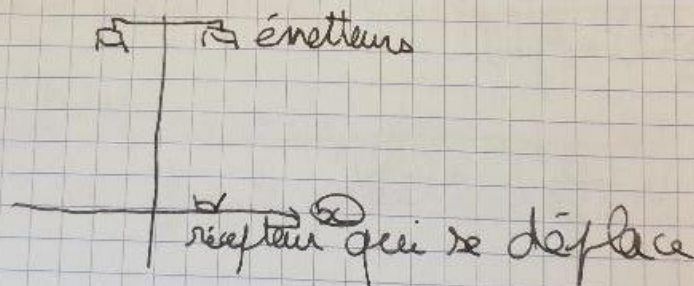 émetteurs
x
récepteur qui se déplace